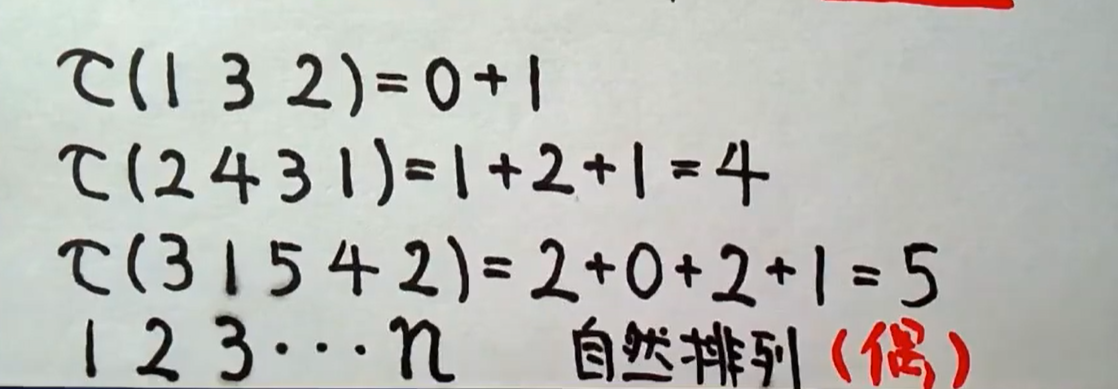 τ(1 3 2)=0+1
τ(2 4 3 1)=1+2+1=4
τ(3 1 5 4 2)=2+0+2+1=5
1 2 3···n 自然排列(偶)